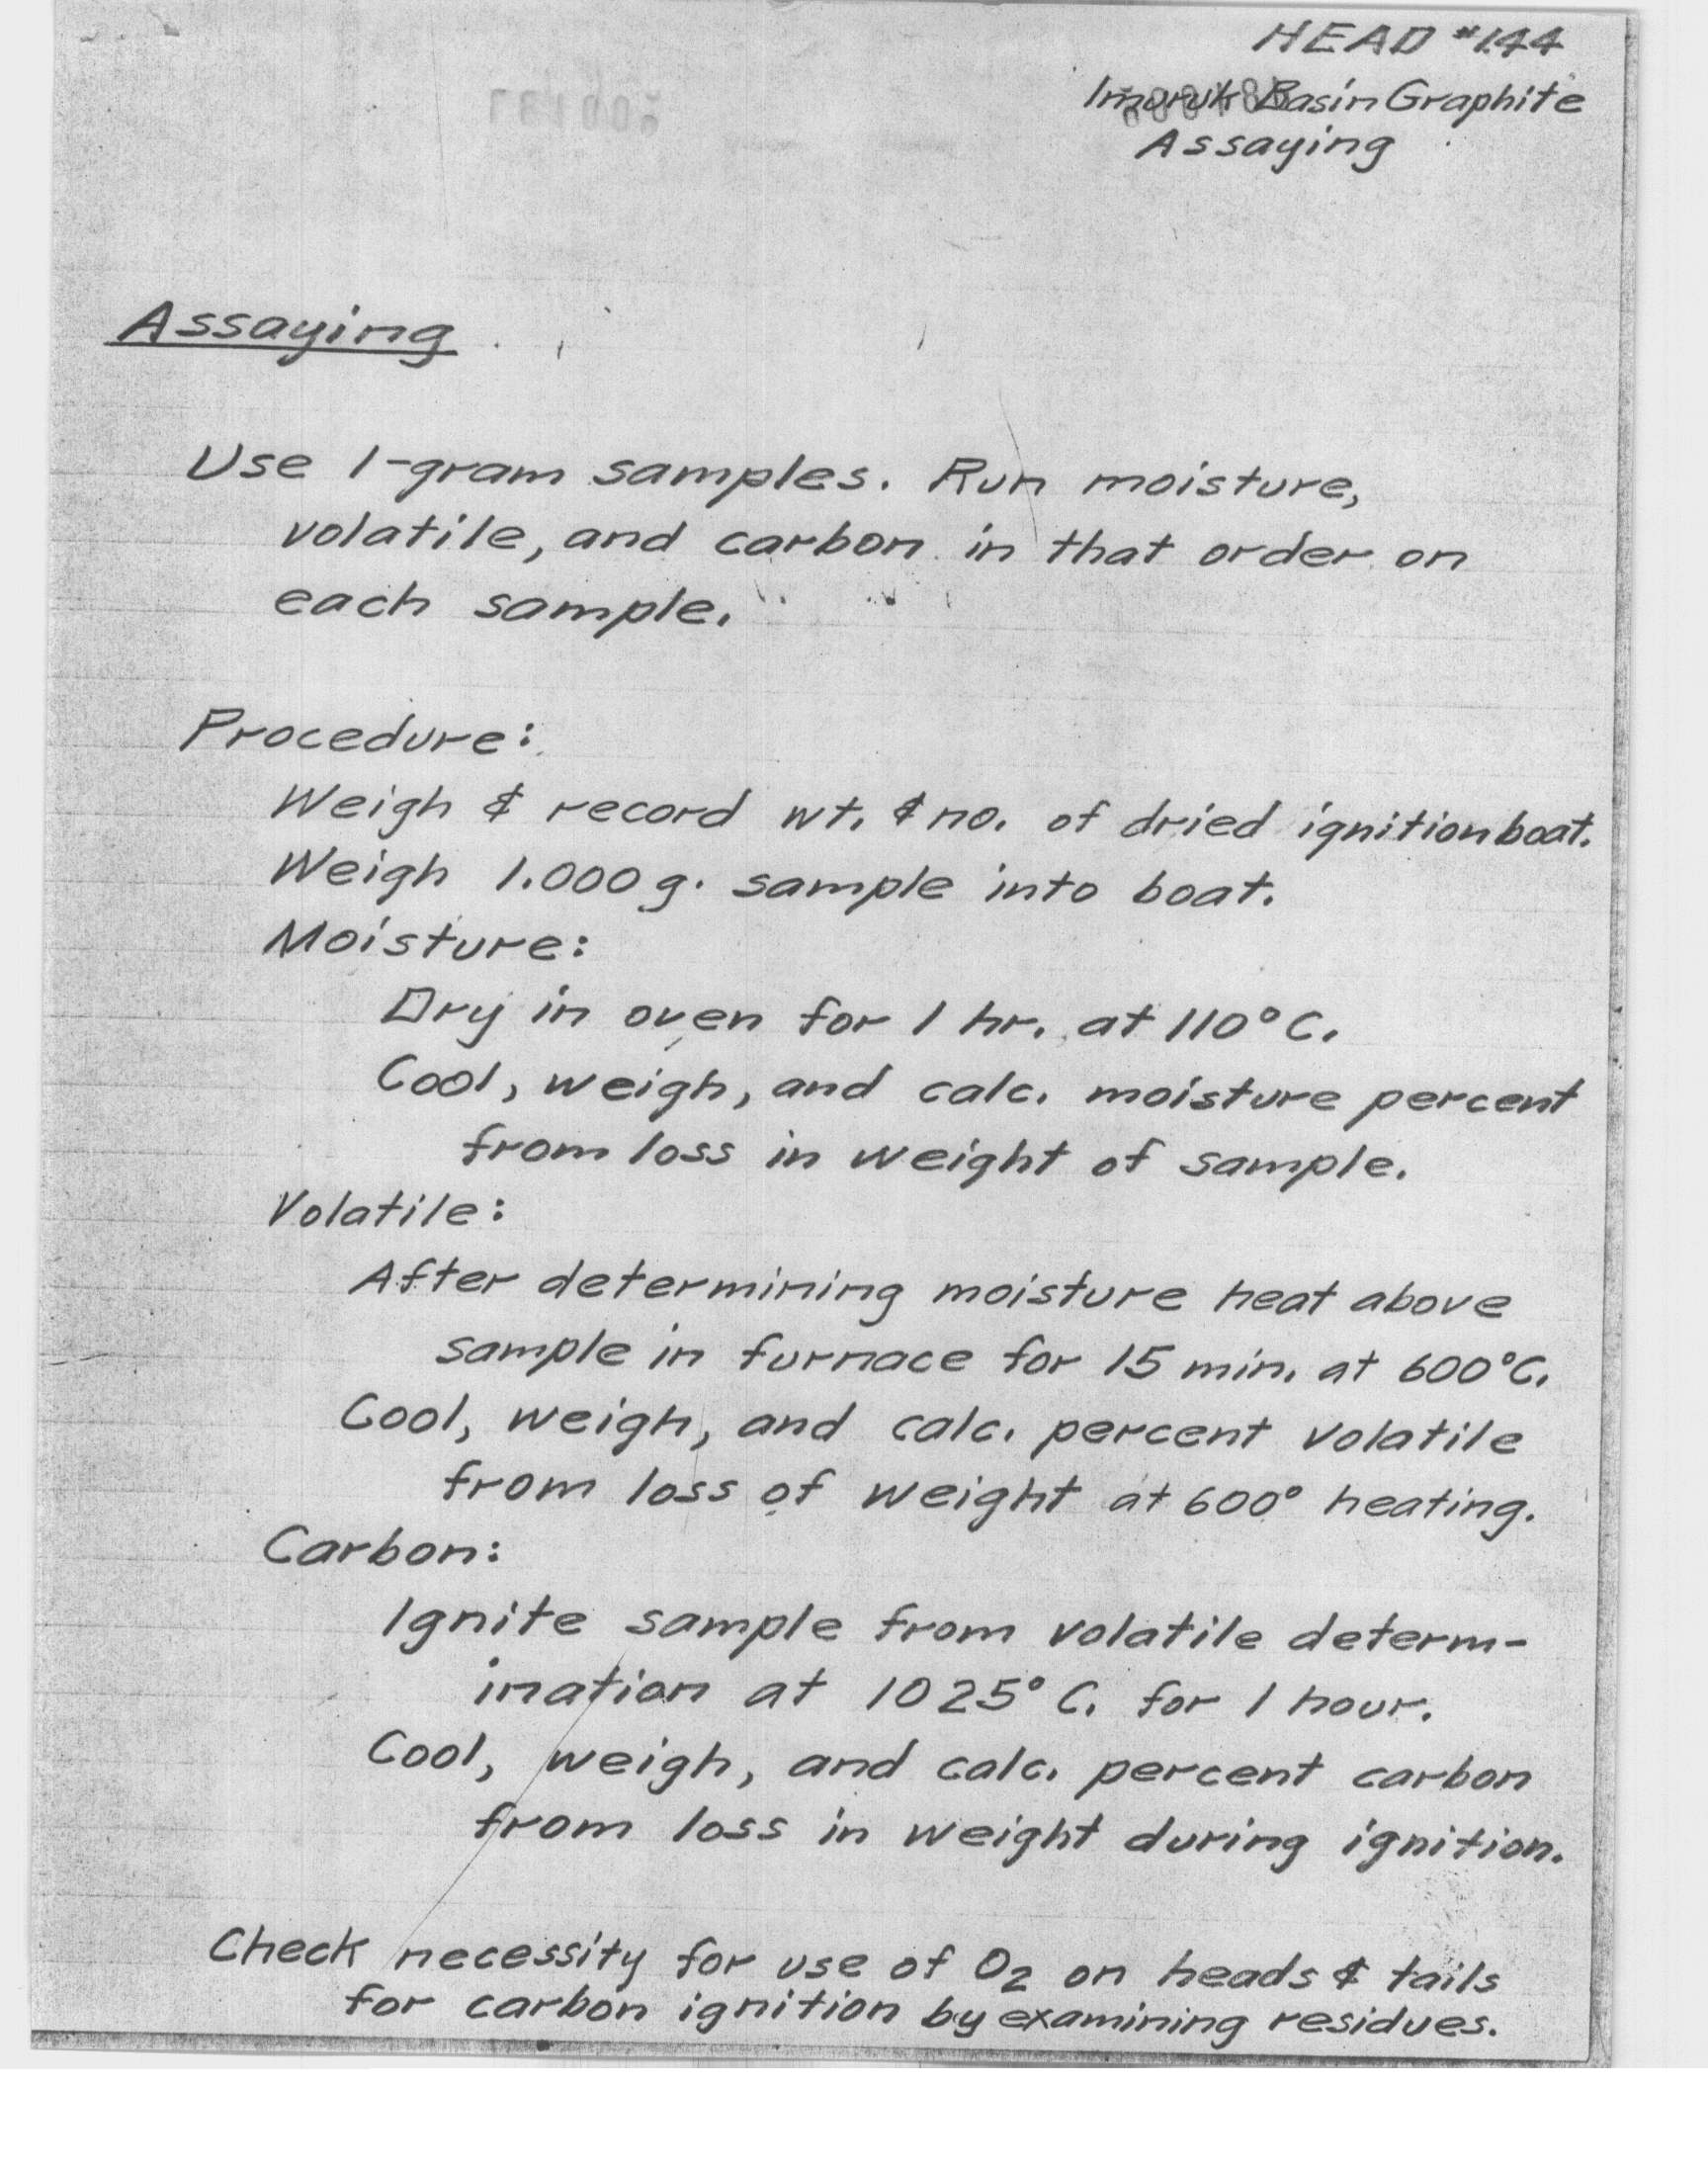 HEAD #144
Imuruk Basin Graphite
Assaying
Assaying
Use 1-gram samples. Run moisture,
volatile, and carbon in that order on
each sample.
Procedure:
Weigh & record wt. & no. of dried ignition boat.
Weigh 1.000 g. sample into boat.
Moisture:
Dry in oven for 1 hr. at 110° C.
Cool, weigh, and calc. moisture percent
from loss in weight of sample.
Volatile:
After determining moisture heat above
sample in furnace for 15 min. at 600°C.
Cool, weigh, and calc. percent volatile
from loss of weight at 600° heating.
Carbon:
Ignite sample from volatile determ-
ination at 1025° C. for 1 hour.
Cool, weigh, and calc. percent carbon
from loss in weight during ignition.
Check necessity for use of O2 on heads & tails
for carbon ignition by examining residues.